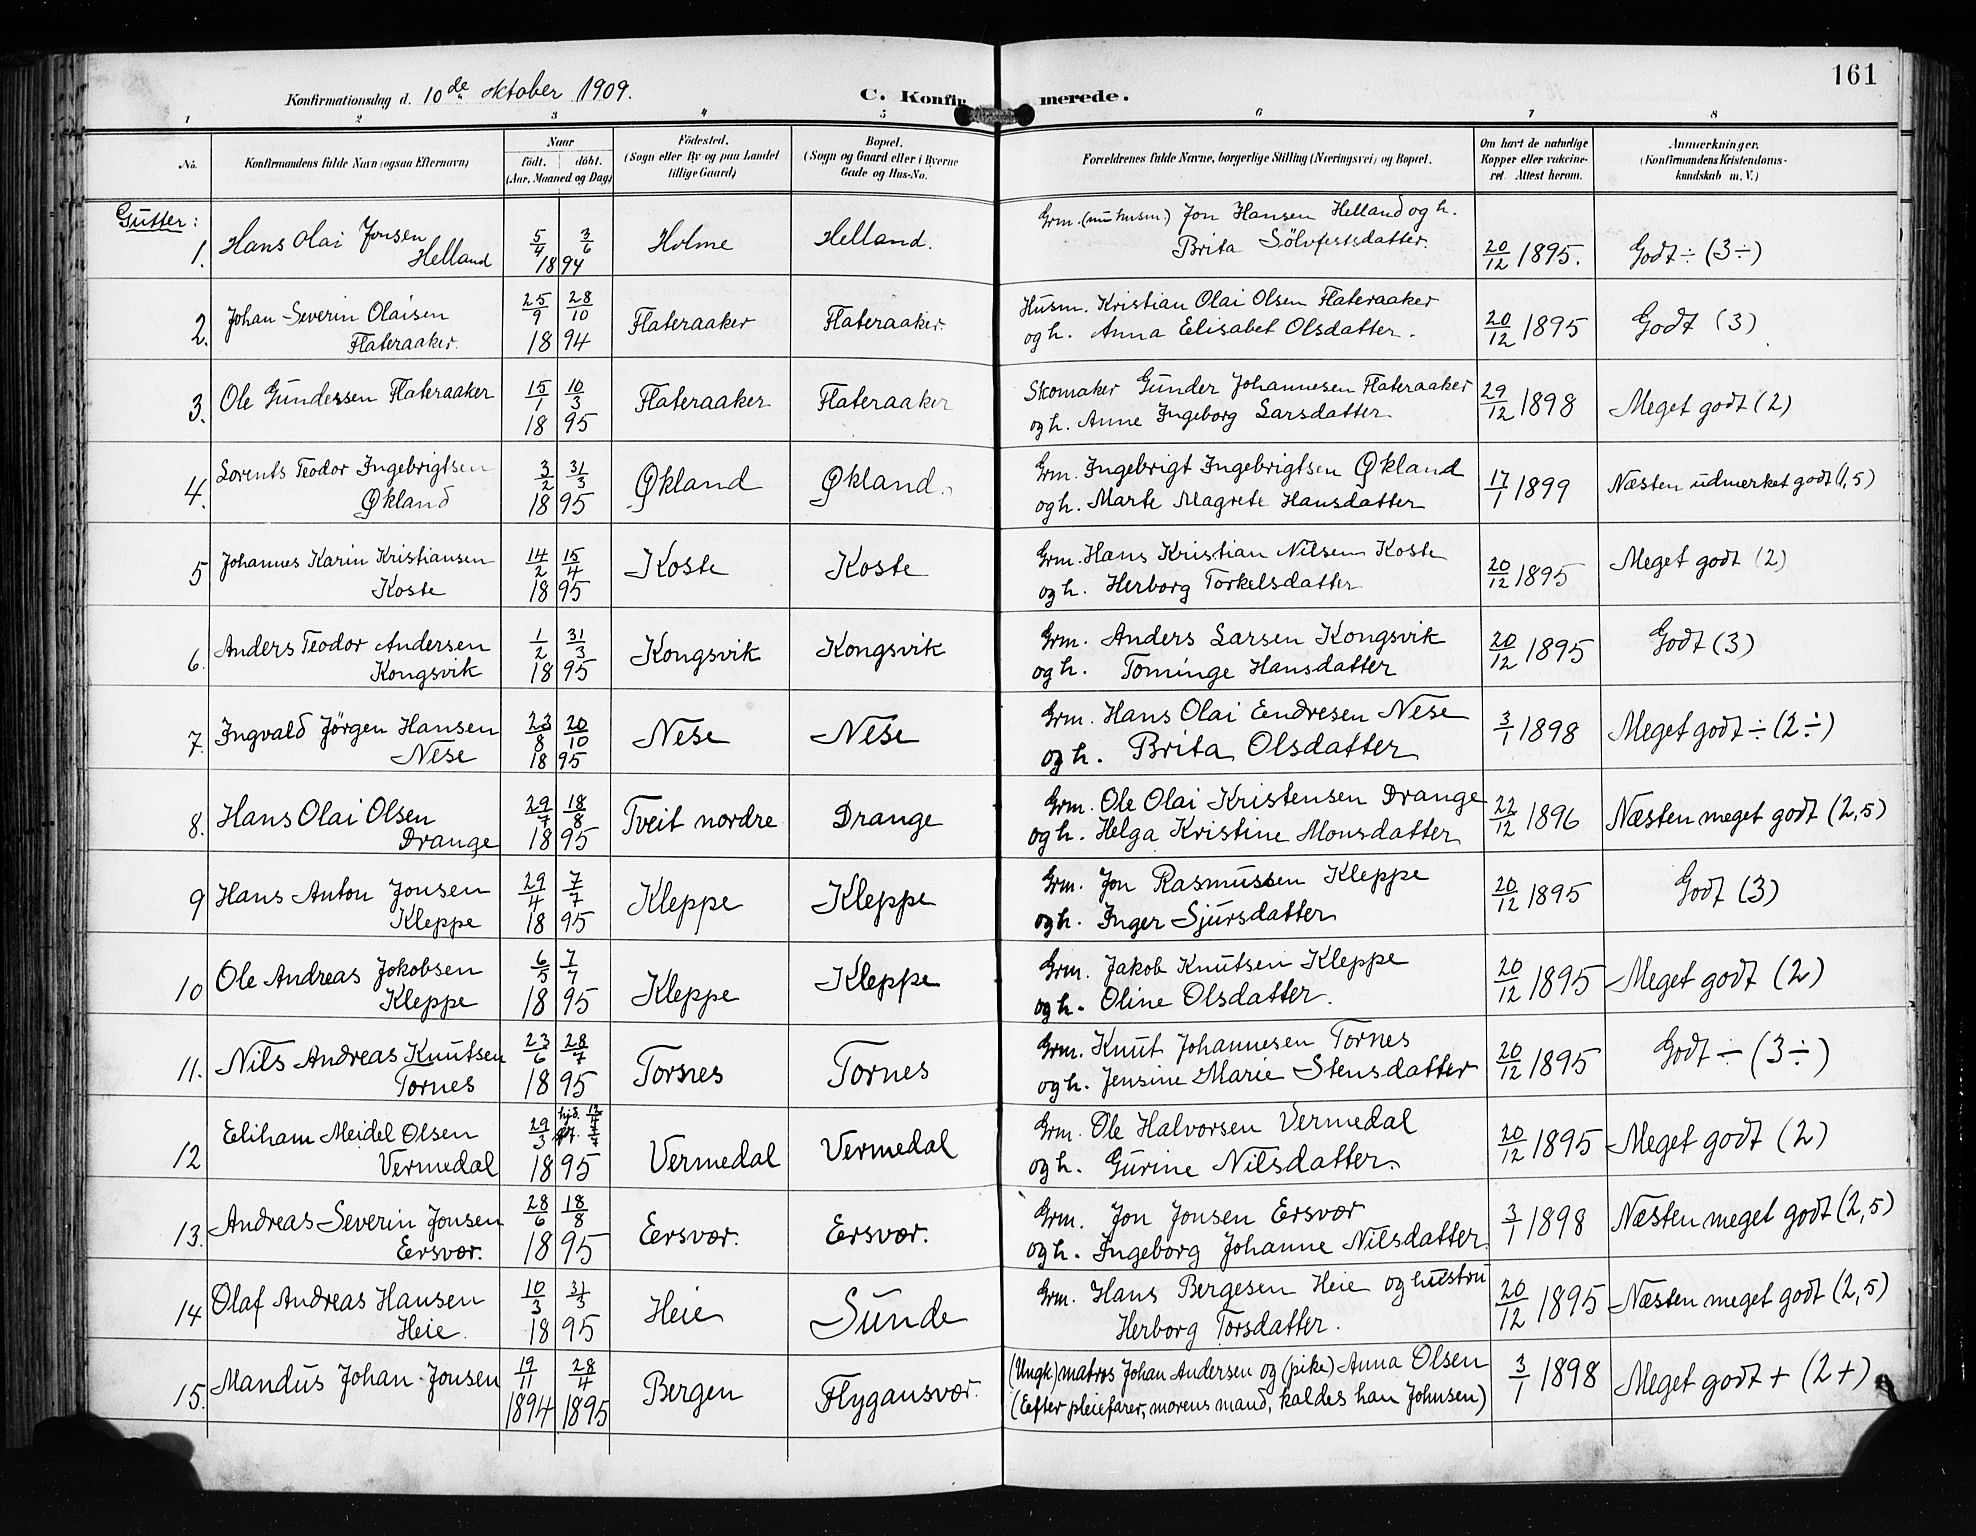 161
Konfirmationsdag d. 10de oktober 1909. C. Konfir merede.
1 2 3 4 5 6 7 8
No. Konfirmandens fulde Navn (ogsaa Efternavn) Naar födt. döbt. (Aar, Maaned og Dag) Födested. (Sogn eller By og paa Landet tillige Gaard) Bopæl. (Sogn og Gaard eller i Byerne Gade og Hus-No. Forældrenes fulde Navne, borgerlige Stilling (Næringsvei) og Bopæl. Om havt de naturlige Kopper eller vakcineret. Attest herom. Anmærkninger. (Konfirmandens Kristendomskundskab m. V.)
Gutter:
1. Hans Olai Jonsen 5/4 3/6 Holme Helland. Grm. (nu husm.) Jon Hansen Helland og h.
Helland 1894 Brita Sölvfestsdatter. 20/12 1895. Godt ÷ (3÷)
2. Johan Severin Olaisen 25/9 28/10 Flateraaker Flateraaker. Husm. Kristian Olai Olsen Flateraaker
Flateraaker. 1894 og h. Anna Elisabet Olsdatter. 20/12 1895 Godt (3)
3. Ole Gundersen Flateraaker 15/1 10/3 Flateraaker Flateraaker Skomaker Gunder Johannesen Flateraaker
1895 og h. Anne Ingeborg Larsdatter 29/12 1898 Meget godt (2)
4. Lorents Teodor Ingebrigtsen 3/2 31/3 Økland Økland. Grm. Ingebrigt Ingebrigtsen Økland
Økland 1895 og h. Marte Magrete Hansdatter 17/1 1899 Næsten udmerket godt (1,5)
5 Johannes Karin Kristiansen 14/2 15/4 Koste Koste Grm. Hans Kristian Nilsen Koste
Koste 1895 og h. Herborg Torkelsdatter 20/12 1895 Meget godt (2)
6. Anders Teodor Andersen 1/2 31/3 Kongsvik Kongsvik Grm. Anders Larsen Kongsvik
Kongsvik 1895 og h. Tominge Hansdatter 20/12 1895 Godt (3)
7. Ingvald Jörgen Hansen 23/8 20/10 Nese Nese Grm. Hans Olai Endresen Nese
Nese 1895 og h. Brita Olsdatter 3/1 1898 Meget godt ÷ (2÷)
8. Hans Olai Olsen 29/7 18/8 Tveit nordre Drange Grm. Ole Olai Kristensen Drange
Drange 1895 og h. Helga Kristine Monsdatter 22/12 1896 Næsten meget godt (2,5)
9 Hans Anton Jonsen 29/4 7/7 Kleppe Kleppe Grm. Jon Rasmussen Kleppe
Kleppe 1895 og h. Inger Sjursdatter 20/12 1895 Godt (3)
10 Ole Andreas Jokobsen 6/5 7/7 Kleppe Kleppe Grm. Jakob Knutsen Kleppe
Kleppe 1895 og h. Oline Olsdatter. 20/12 1895 Meget godt (2)
11. Nils Andreas Knutsen 23/6 28/7 Tornes Tornes Grm. Knut Johannesen Tornes
Tornes 1895 og h. Jensine Marie Stensdatter 20/12 1895 Godt ÷ (3÷)
12 Eliham Meidel Olsen 29/3 hjd. Vermedal Vermedal Grm. Ole Halvorsen Vermedal
Vermedal 1895 og h. Gurine Nilsdatter. 20/12 1895 Meget godt (2)
13. Andreas Severin Jonsen 28/6 18/8 Eersvær. Ersvær. Grm. Jon Jonsen Ersvær
Eersvær. 1895 og h. Ingeborg Johanne Nilsdatter. 3/1 1898 Næsten meget godt (2,5)
14 Olaf Andreas Hansen 10/3 31/3 Heie Sunde Grm. Hans Bergesen Heie og hustru
Heie. 1895 Herborg Torsdatter. 20/12 1895 Næsten meget godt (2,5)
15. Mandus Johan Jonsen 19/11 28/4 Bergen Flygansvær. (Ungk) matros Johan Andersen og (pike) Anna Olsen
1894 1895 (Eefter pleiefarer, morens mand, kaldes han Johnsen) 3/1 1898 Meget godt + (2+)